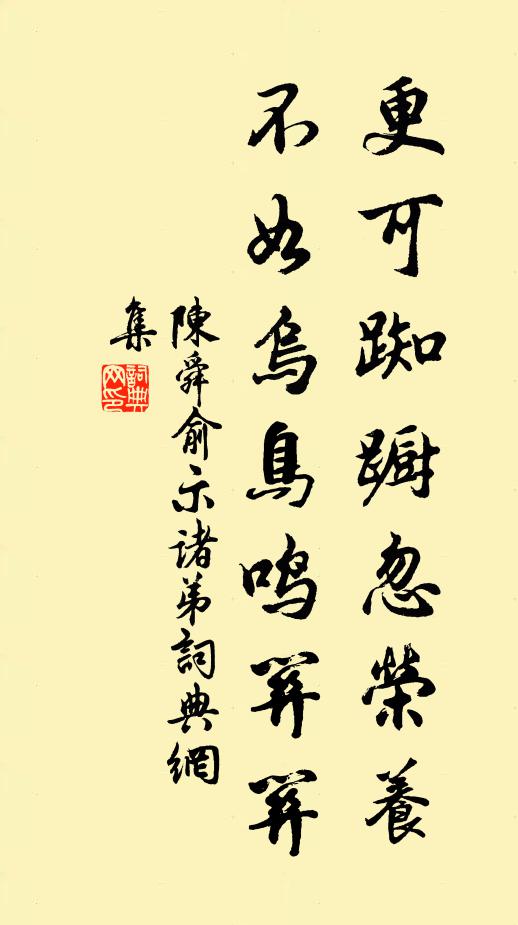 更可踟蹰忽榮養
不如烏鳥鳴關關
陳舜俞示諸弟詞典網
集
詞典
网印